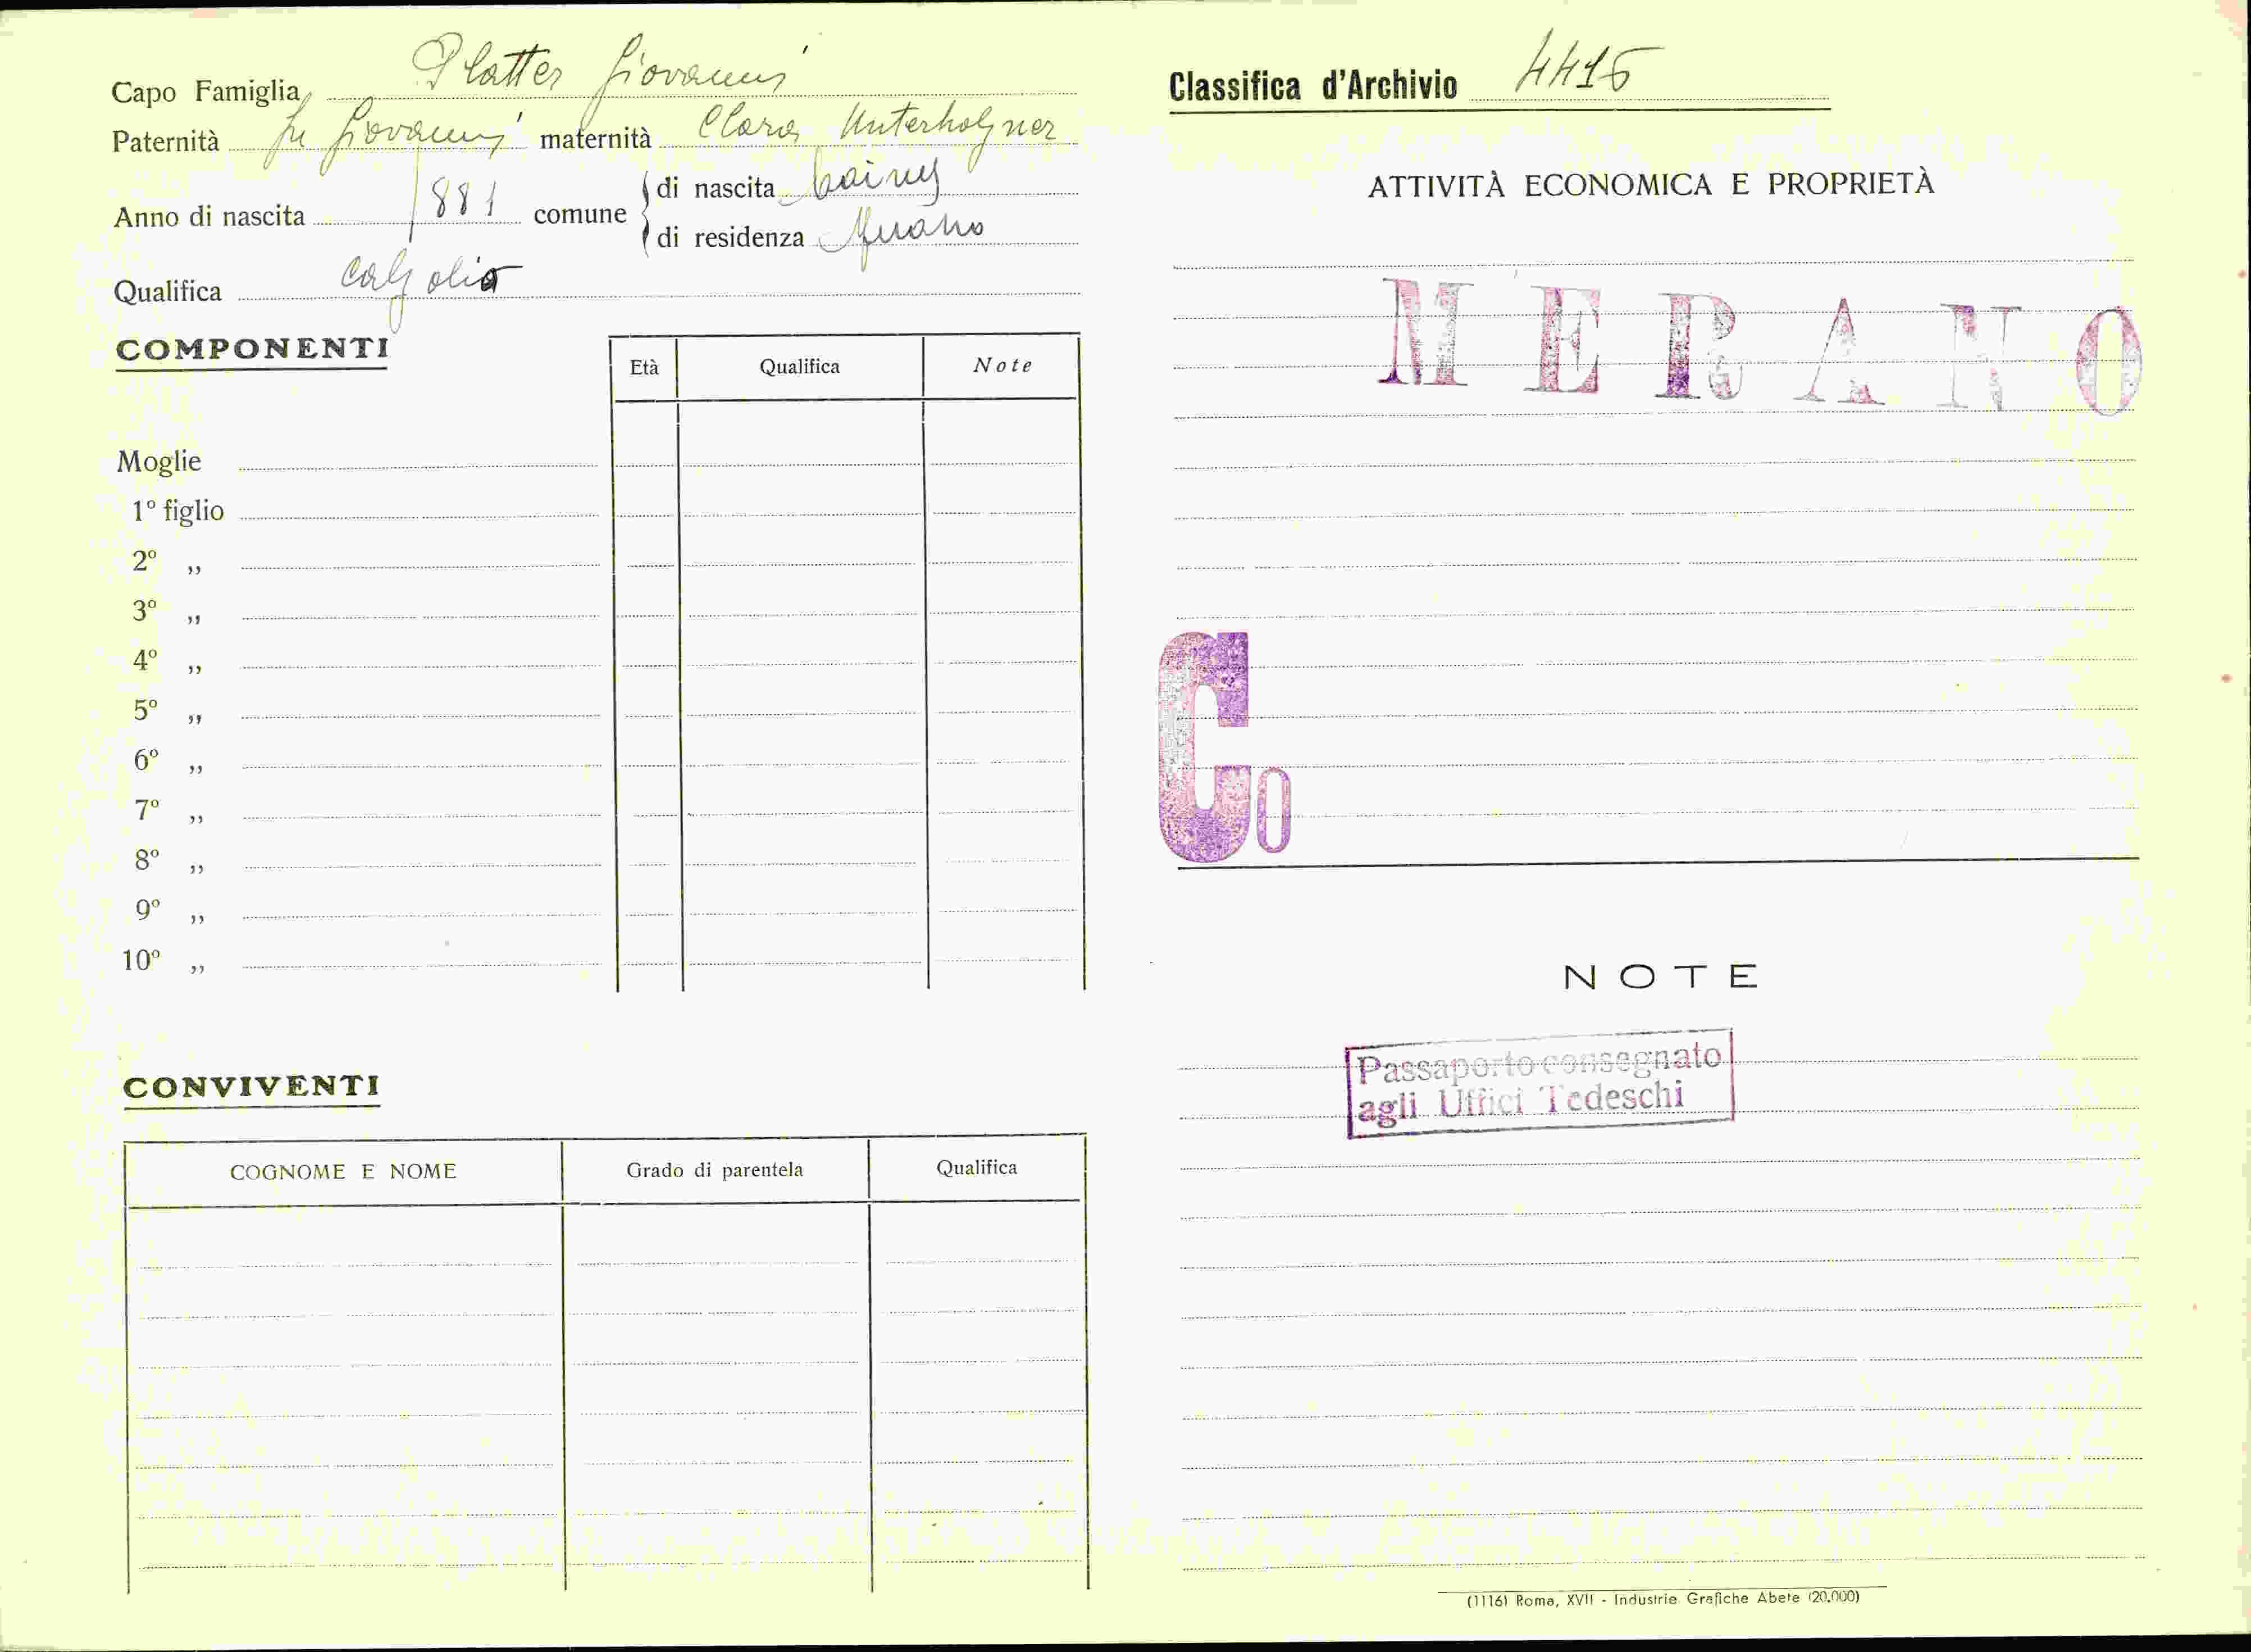 Capo Famiglia Platter Giovanni
Paternità fu Giovanni maternità Clara Unterholzner
Anno di nascita 1881 comune di nascita
di residenza Merano
Qualifica Calzolio
COMPONENTI
Età Qualifica Note
Moglie
1º figlio
2º „
3º „
4º „
5º „
6º „
7º „
8º „
9º „
10º „
CONVIVENTI
COGNOME E NOME Grado di parentela Qualifica
Classifica d'Archivio 4416
ATTIVITÀ ECONOMICA E PROPRIETÀ
MERANO
Co
NOTE
Passaporto consegnato
agli Uffici Tedeschi
(1116) Roma, XVII - Industrie Grafiche Abete (20.000)